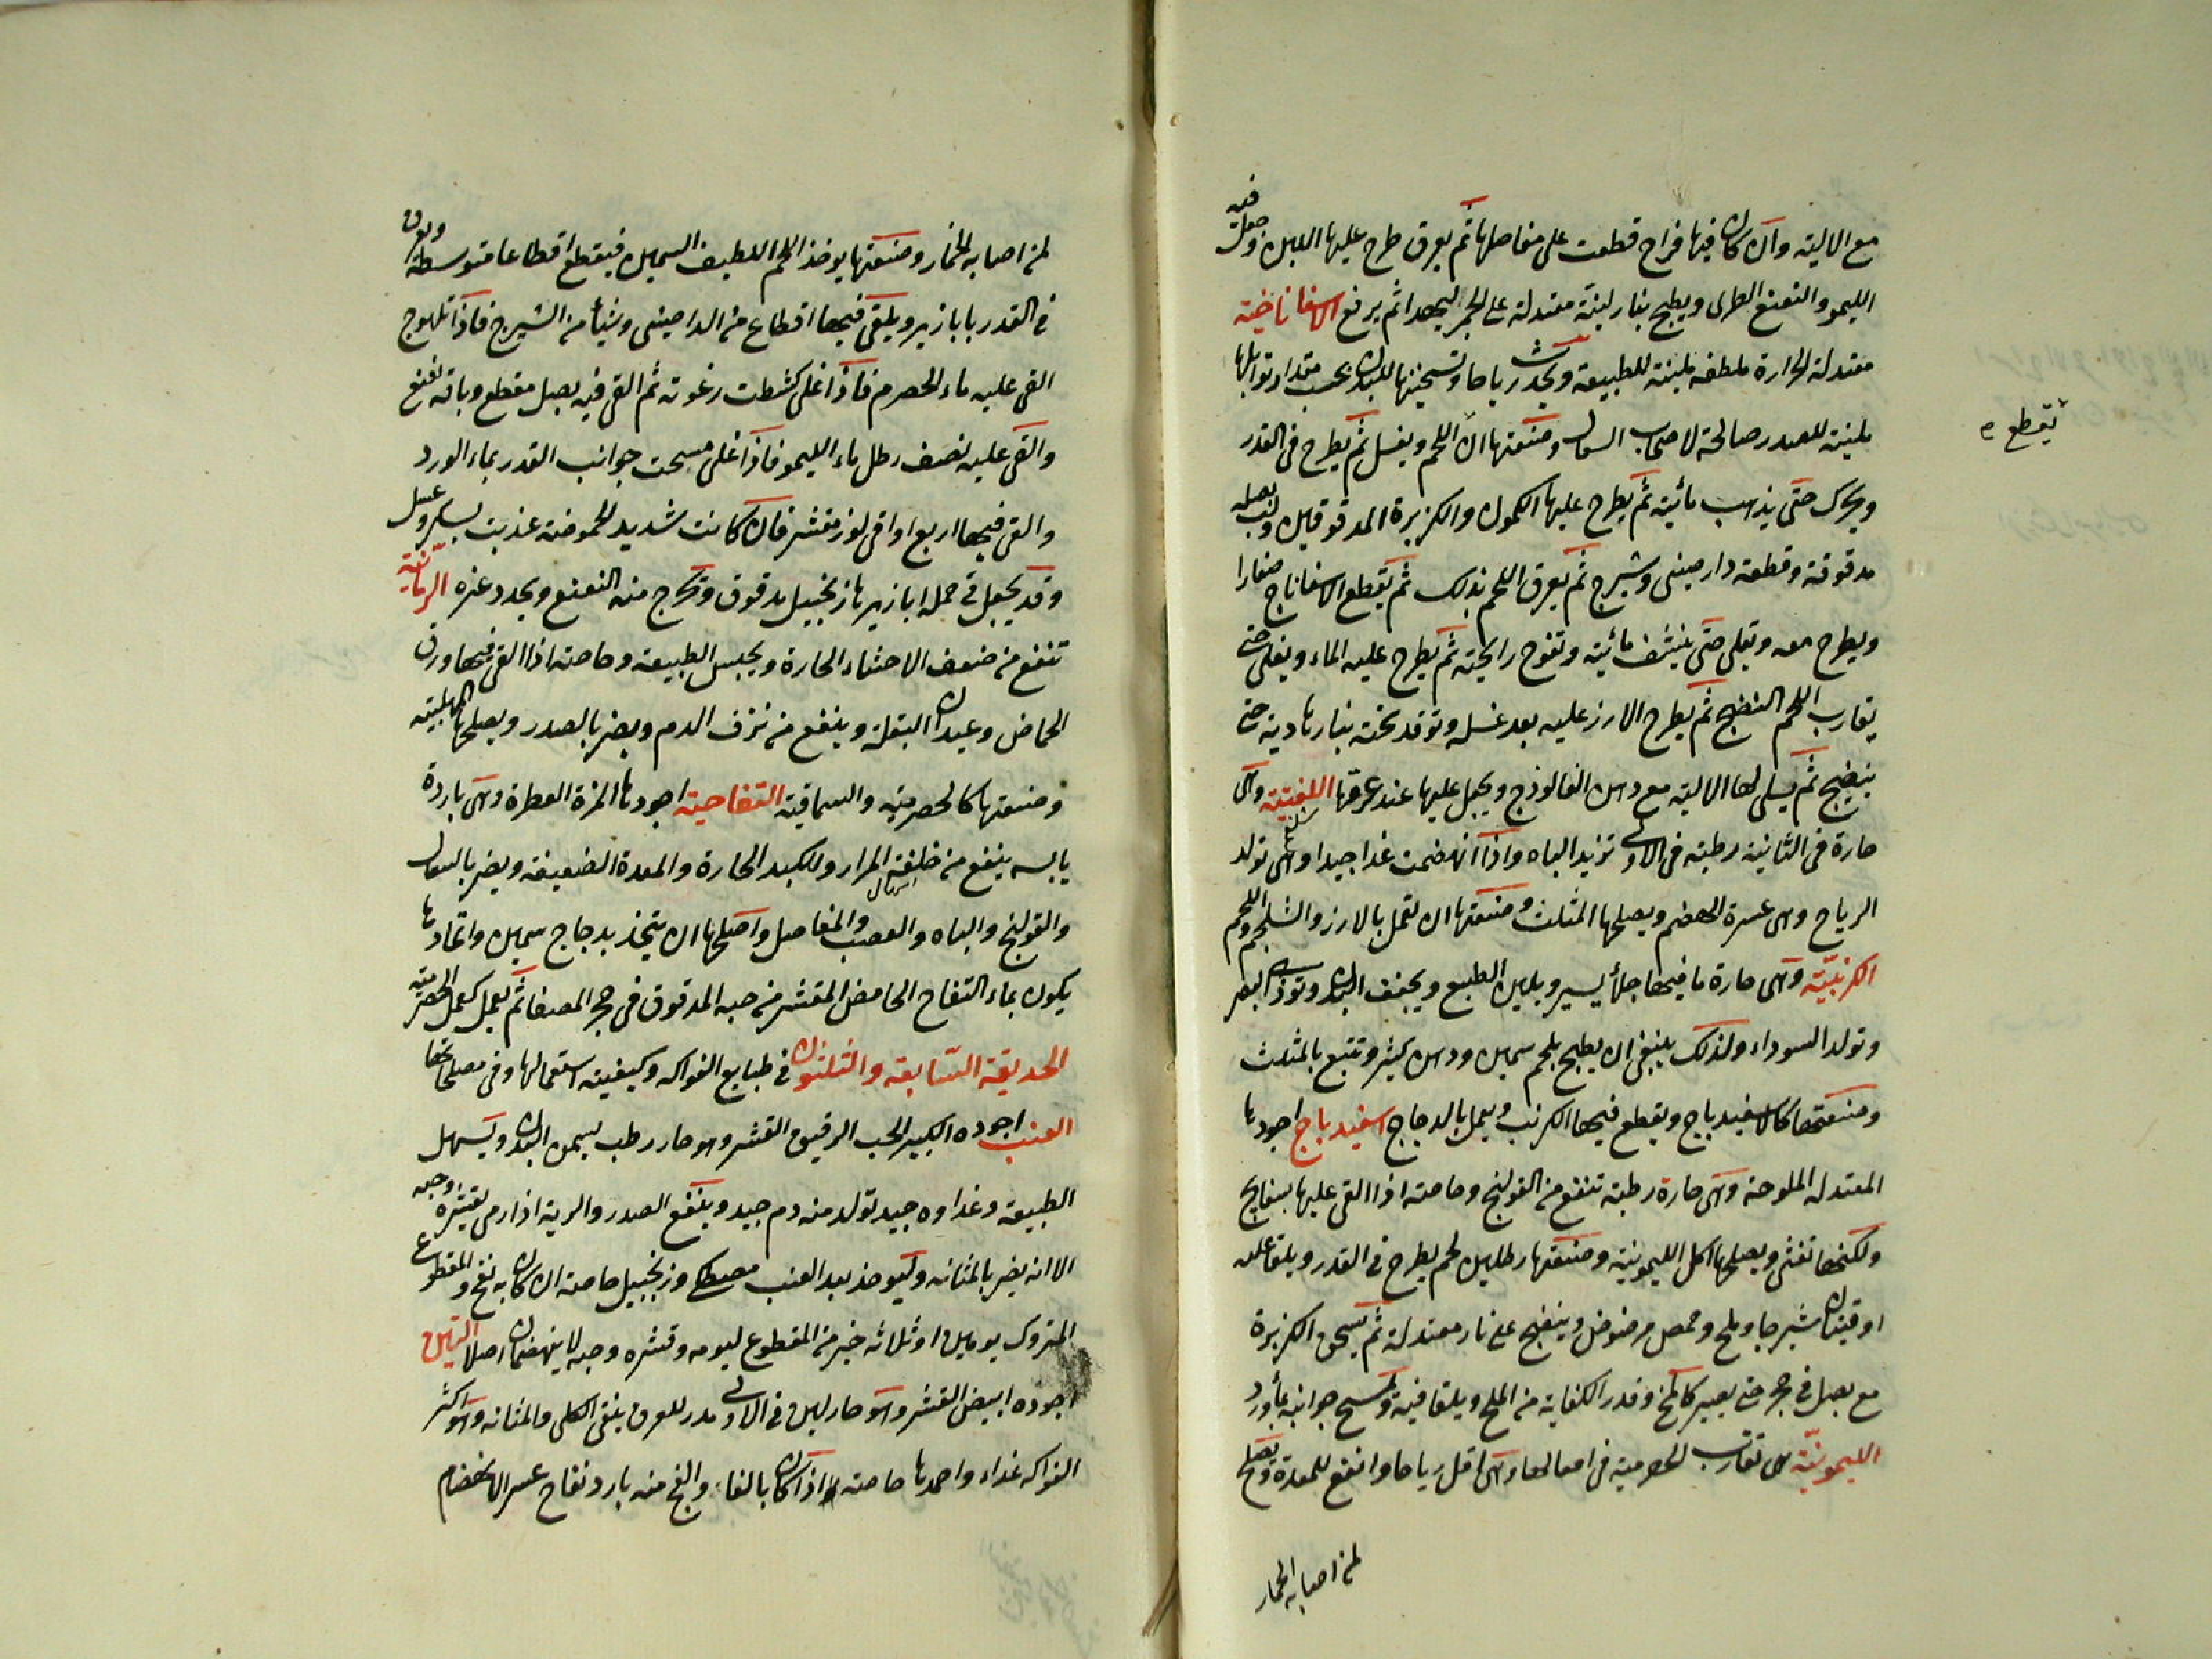 مع الالية وان كان فيها فراخ قطعت على مفاصلها ثم يعرق طرح عليها اللبن وجعل فيه
الليمو والنعنع الطرى ويطبخ بنار لينة معتدلة على الجمر ليهدا ثم يرفع الاسفاناخية
معتدلة الحرارة ملطفه ملينة للطبيعة ويحدث رياحا وتسخينها للبدن بحسب مقدار توابلها
ملينة للصدر صالحة لاصحاب السعال وصنعتها ان اللحم ويغسل ثم يطرح فى القدر
يقطع
ويحرك حتى يذهب مائيته ثم يطرح عليها الكمون والكزبرة المدقوقين ولب بصله
مدقوقة وقطعة دارصينى وشيرج ثم يعرق اللحم بذلك ثم يقطع الاسفاناج صغارا
ويطرح معه وتقلى حتى ينشف مائيته وتفوح رايحته ثم يطرح عليه الماء ويغلى حتى
يقارب اللحم النضج ثم يطرح الارز عليه بعد غسله وتوقد تحته بنار هادية حتى
ينضج ثم يسلى لها الالية مع دهن الفالوذج ويجعل عليها عند غرفها اللفتية وهى
حارة فى الثانية رطبة فى الاولى تزيد الباه واذا انهضمت غذا جيدا وهى تولد
الرياح وهى عسرة الهضم ويصلحها المثلث وصنعتها ان تعمل بالارز والشلجم واللحم
الكرنبيّة وهى حارة ما فيها جلأ يسير ويلين الطبع ويجفف البدن وتوذى البصر
وتولد السوداء ولذلك ينبغى ان يطبخ بلحم سمين ودهن كثير وتتبع بالمثلث
وصنعتها كالاسفيدباج ويقطع فيها الكرنب ويعمل بالدجاج اسفيدباج اجودها
المعتدله الملوحة وهى حارة رطبة تنفع من القولنج وخاصة اذا القى عليها بسفايج
ولكنها تغثى ويصلحها اكل الليمونية وصنعتها رطلين لحم يطرح فى القدر ويلقا عليه
اوقيتان شيرجا وملح وحمص مرضوض وينضج على نار معتدلة ثم يسحق الكزبرة
مع بصل فى حجر حتى يصير كالمخ وقدر الكفاية من الملح ويلقا فيه وتمسح جوانبه بماورد
الليمونيّة هى تقارب الحصرمية فى افعالها وهى اقل رياحا وانفع للمعدة وتصلح
لمن اصابه الخمار
لمن اصابه الخمار وصنعتها يوخذ اللحم اللطيف السمين فيقطع اقطاعا متوسطة ويعرق
فى القدر بابازير ويلقى فيها اقطاع من الدارصينى وشيأ من الشيرج فاذا تلهوج
القى عليه ماء الحصرم فاذا غلى كشطت رغوته ثم القى فيه بصل مقطع وباقه نعنع
والقى عليه نصف رطل ماء الليمو فاذا غلى مسحت جوانب القدر بماء الورد
والقى فيها اربع اواقى لوز مقشر فان كانت شديد الحموضة عذبت بسكر وعسل
وقد يجعل فى جملة ابازيرها زنجبيل مدقوق وتخرج منه النعنع ويجدد غيره الرمانية
تنفع من ضعف الاحشاء الحارة ويحبس الطبيعة وخاصته اذا القى فيها ورق
الحماض وعيدان البقلة وينفع من نزف الدم ويضر بالصدر ويصلحها المهلبية
وصنعتها كالحصرمية والسماقية التفاحية اجودها المزة العطرة وهى باردة
يابسه ينفع من خلفة المرار وللكبد الحارة والمعدة الضعيفة ويضر بالسعال
اسهال
والقولنج والباه والعصب والمفاصل واصلحها ان يتخذ بدجاج سمين واتخاذها
يكون بماء التفاح الحامض المقشر من حبه المدقوق فى حجر المصفا ثم يعمل كعمل الحصرمية
الحديقة السّابعة والثلثون فى طبايع الفواكه وكيفية استعمالها وفى مصلحاتها
العنب اجوده الكبير الحب الرقيق القشر وهو حار رطب يسمن البدن ويسهل
الطبيعة وغذاوه جيد تولد منه دم جيد وينفع الصدر والرية اذا رمى بقشره وحبه
الا انه يضر بالمثانه وليوخذ بعد العنب مصطكى وزنجبيل خاصة ان كان به نفخ والمقطوع
المتروك يومين او ثلاثه خير من المقطوع ليومه وقشره وحبه لا ينهضمان اصلا التين
اجوده ابيض القشر وهو حار لين فى الاولى مدر للعرق ينقى الكلى والمثانه وهو اكثر
الفواكه غذاء واحمدها خاصته اذا كان بالغا والفج منه بارد نفاخ عسر الانهضام